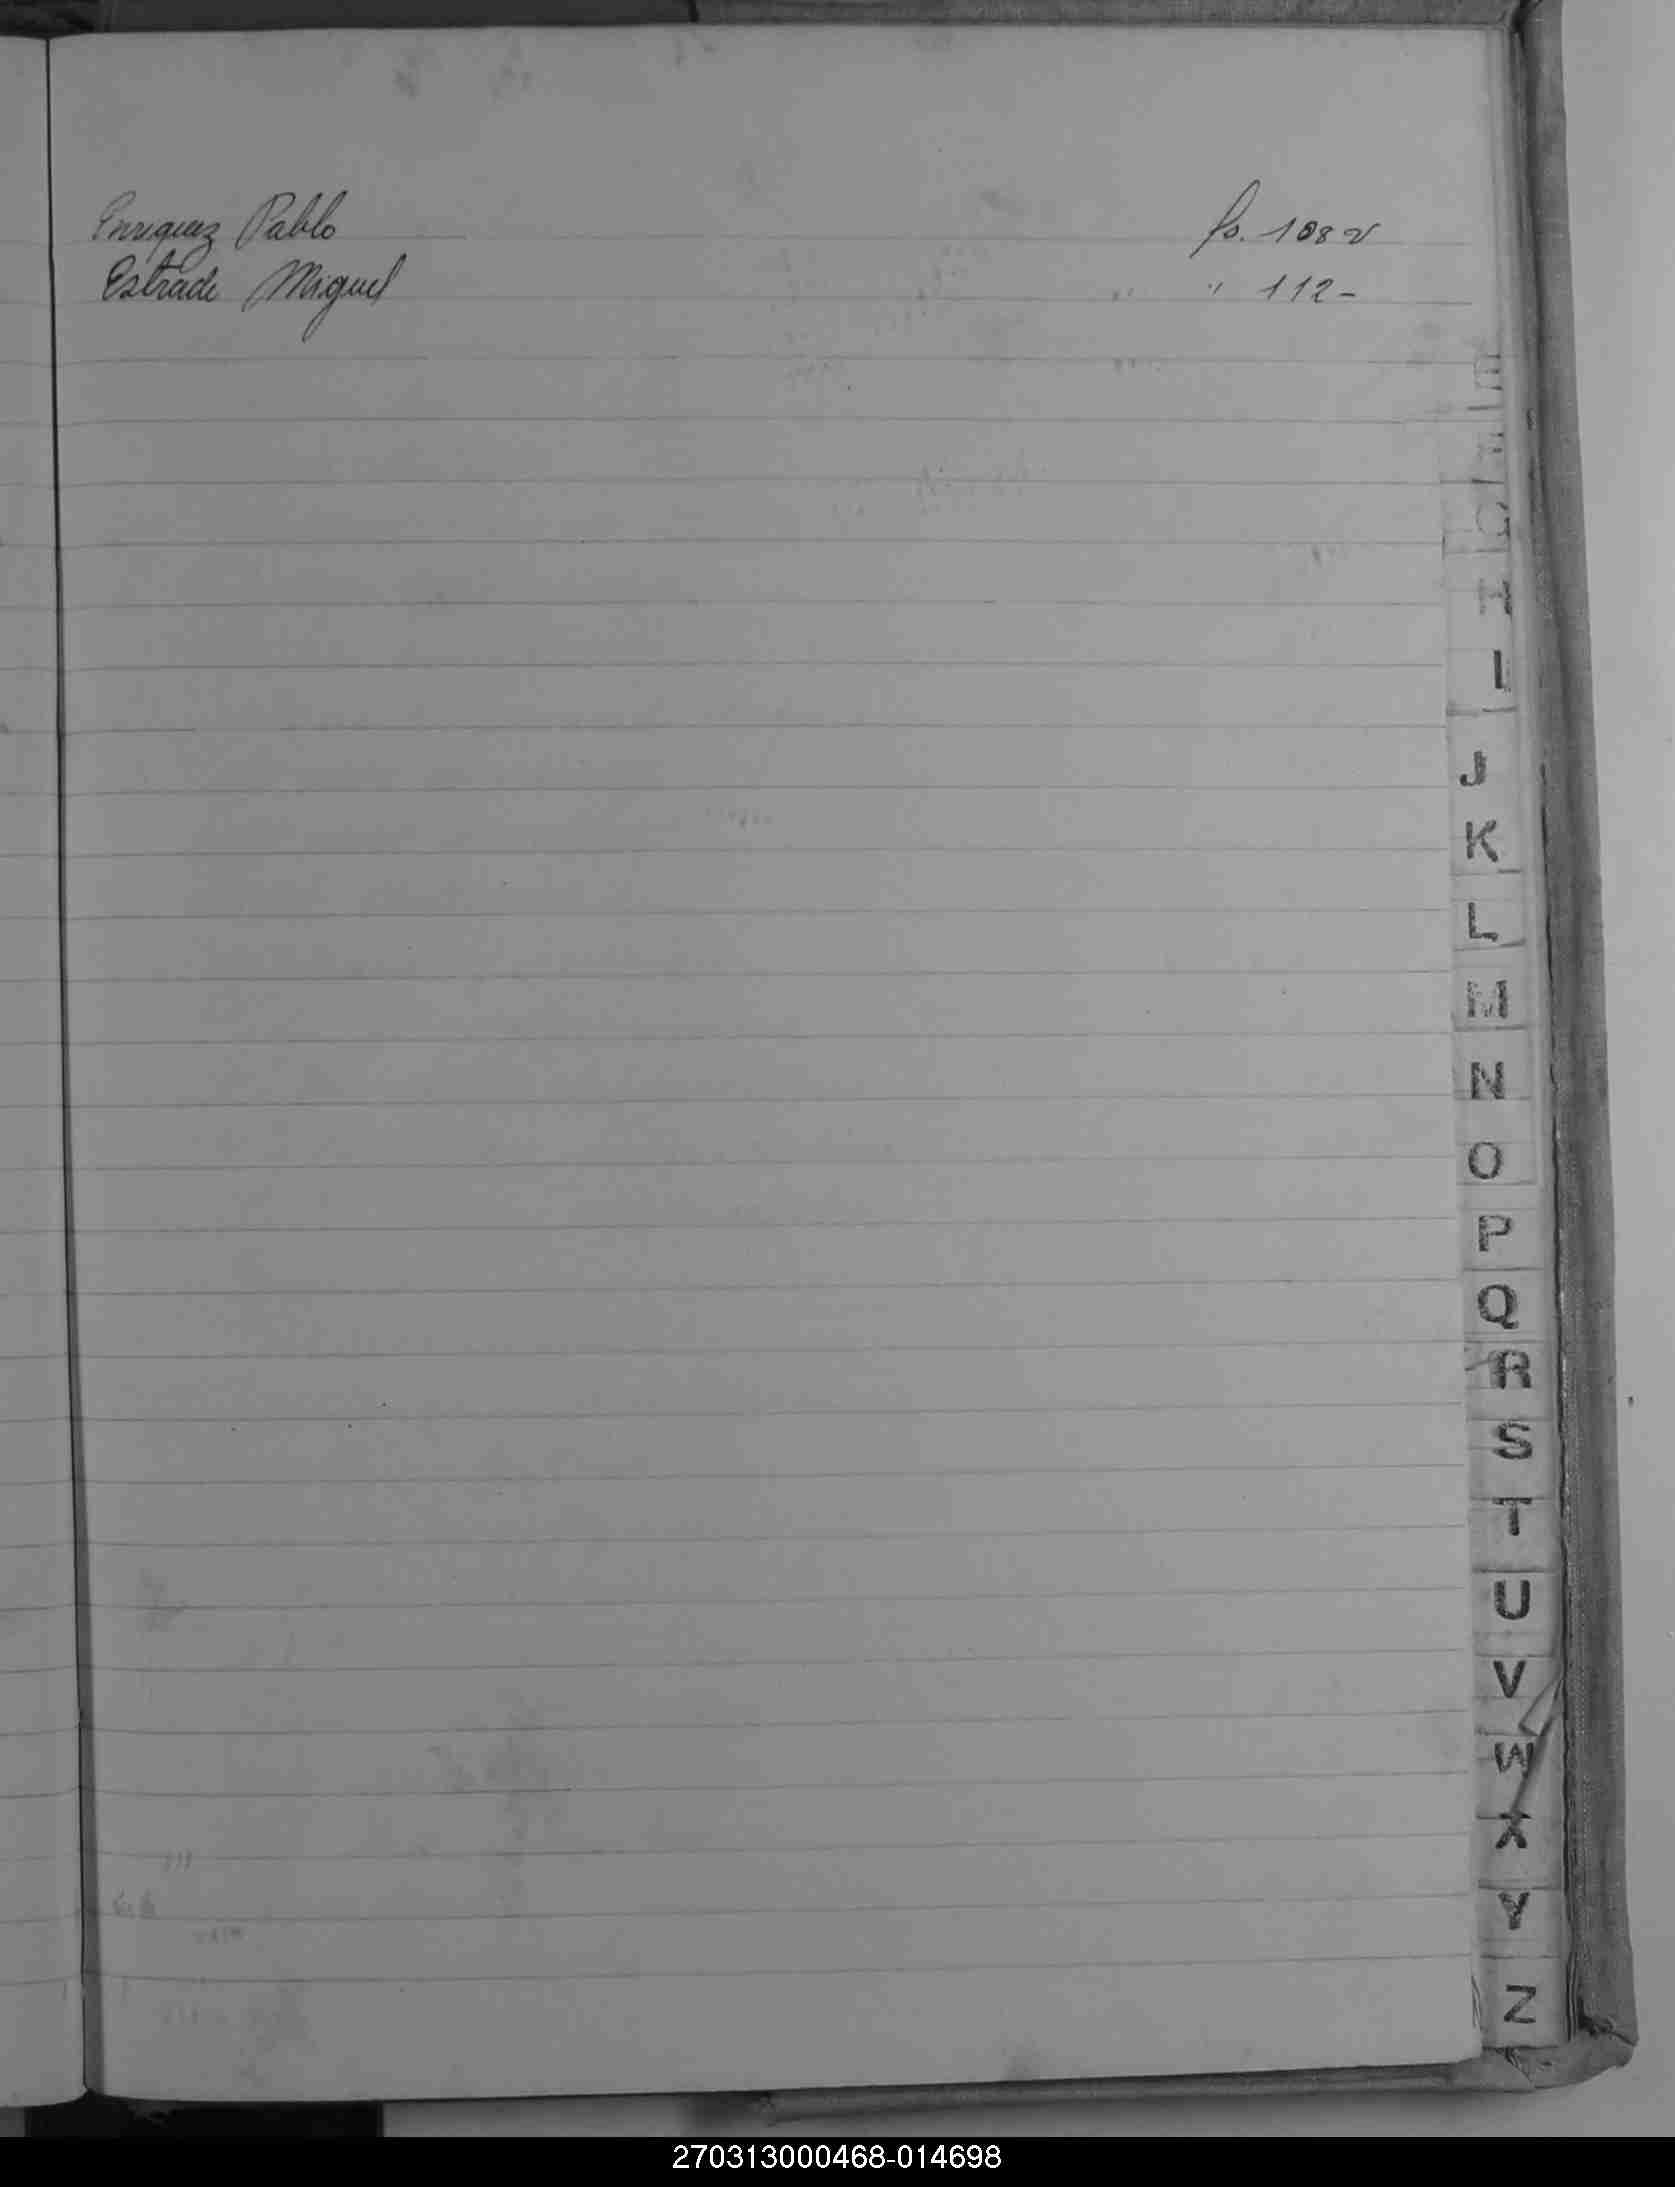 Enriquez Pablo fo. 108 v
Estrade Miguel " 112 -
E
F
G
H
I
J
K
L
M
N
O
P
Q
R
S
T
U
V
W
X
Y
Z
270313000468-014698